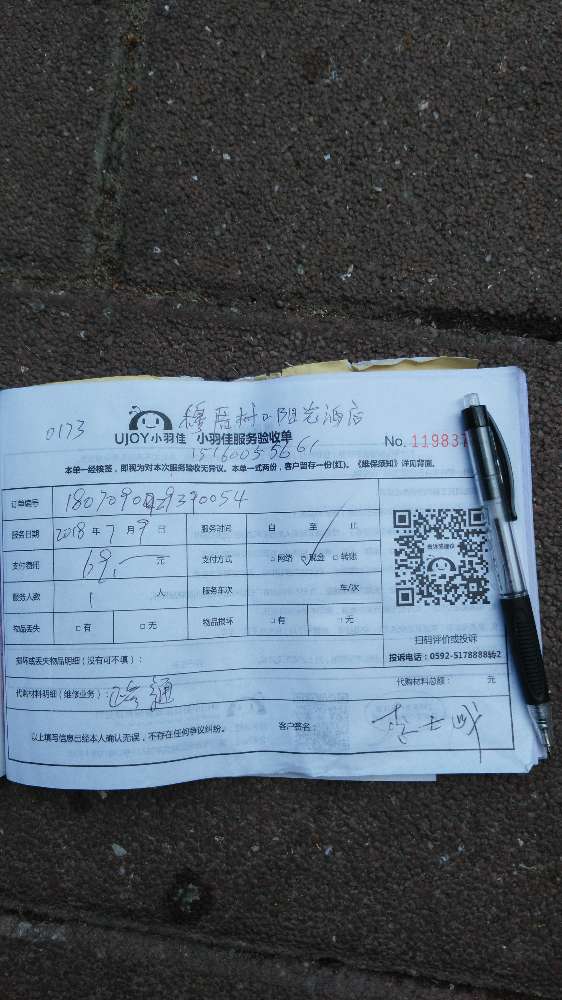 0173
UJOY小羽佳 小羽佳服务验收单
No. 119837
本单一经接签，即视为对本次服务验收无异议。本单一式两份，客户留存一份(红)。《维保须知》详见背面。
订单编号
服务日期 2018 年 7 月 9 日 服务时间 自 至 止
支付费用 69.— 元 支付方式 □网络 □现金 □转账
服务人数 1 人 服务车次 车/次
物品丢失 □有 □无 物品损坏 □有 □无
扫码评价或投诉
投诉电话：0592-5178888转2
损坏或丢失物品明细（没有可不填）：
代购材料明细（维修业务）： 代购材料总额： 元
以上填写信息已经本人确认无误，不存在任何争议纠纷。 客户签名：